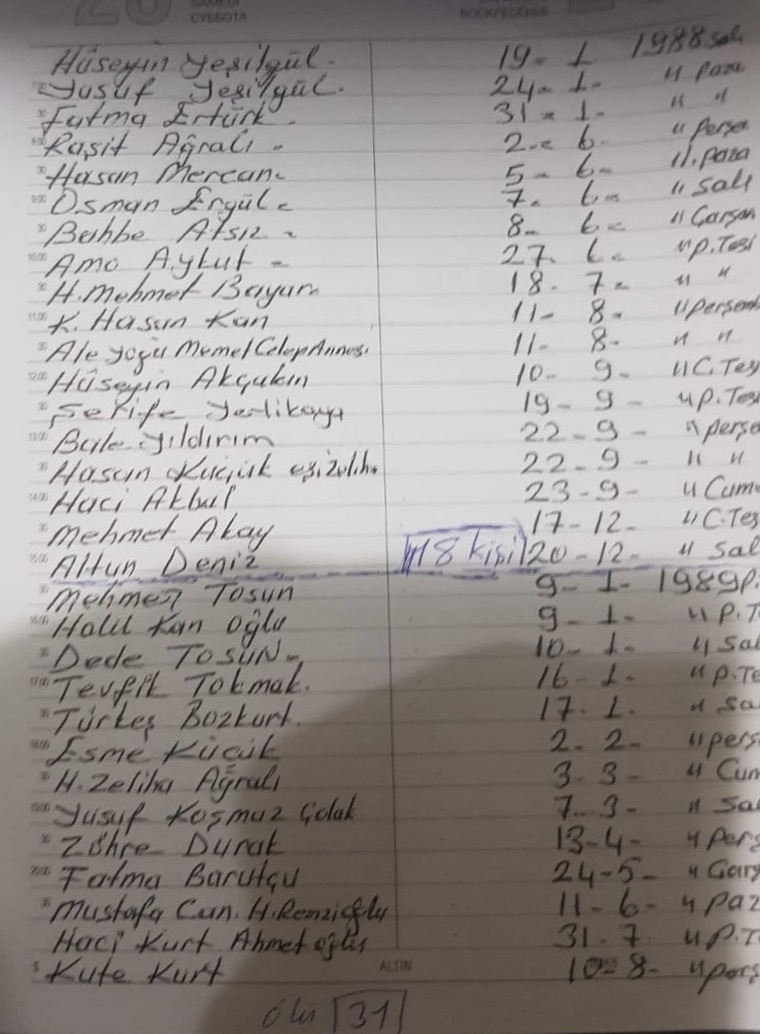 SAMEDİ
СУББОТА ВОСКРЕСЕНЬЕ
Hüseyin Yeşilgül. 19- 1 1988 Salı
Yusuf Yeşilgül. 24- 1- " Paza
Fatma Ertürk - 31- 1- " "
Raşit Ağralı - 2- 6- " Perşe
Hasan Mercan- 5- 6- " Paza
Osman Ergül- 7- 6- " Salı
Bahbe Atsız - 8- 6- " Çarşan
Amo Aykut - 27- 6- " P.Tesi
H. Mehmet Bayum 18- 7- " "
K. Hasan Kan 11- 8- " Perşemb
Ale yoğu Memet Celep Annesi 11- 8- " "
Hüseyin Akçakın 10- 9- " C.Tes
Şerife Yerlikaya 19- 9- " P.Tes
Bale Yıldırım 22- 9- " Perşe
Hasan Küçük eşi Zeliha 22- 9- " "
Haci Akbul 23- 9- " Cum
Mehmet Akay 17- 12- " C.Tes
Altun Deniz 18 kişi 20- 12- " Sal
Mehmet Tosun 9- 1- 1989 P.
Halil Kan oğlu 9- 1- " P.T
Dede TOSUN- 10- 1- " Sal
Tevfik Tokmak. 16- 1- " P.Te
Türkeş Bozkurt. 17. 1. " Sa
Esme Küçük 2- 2- " Perş
H. Zeliha Ağralı 3- 3- " Cum
Yusuf Koşmaz Çolak 7- 3- " Sal
Zöhre Durak 13-4- " Perş
Fatma Barutçu 24-5- " Çarş
Mustafa Can. H. Remzi oğlu 11- 6- " Paz
Haci Kurt Ahmet oğlu 31- 7. " P.T
Kute Kurt 10- 8- " Perş
ALTIN
ölü 31